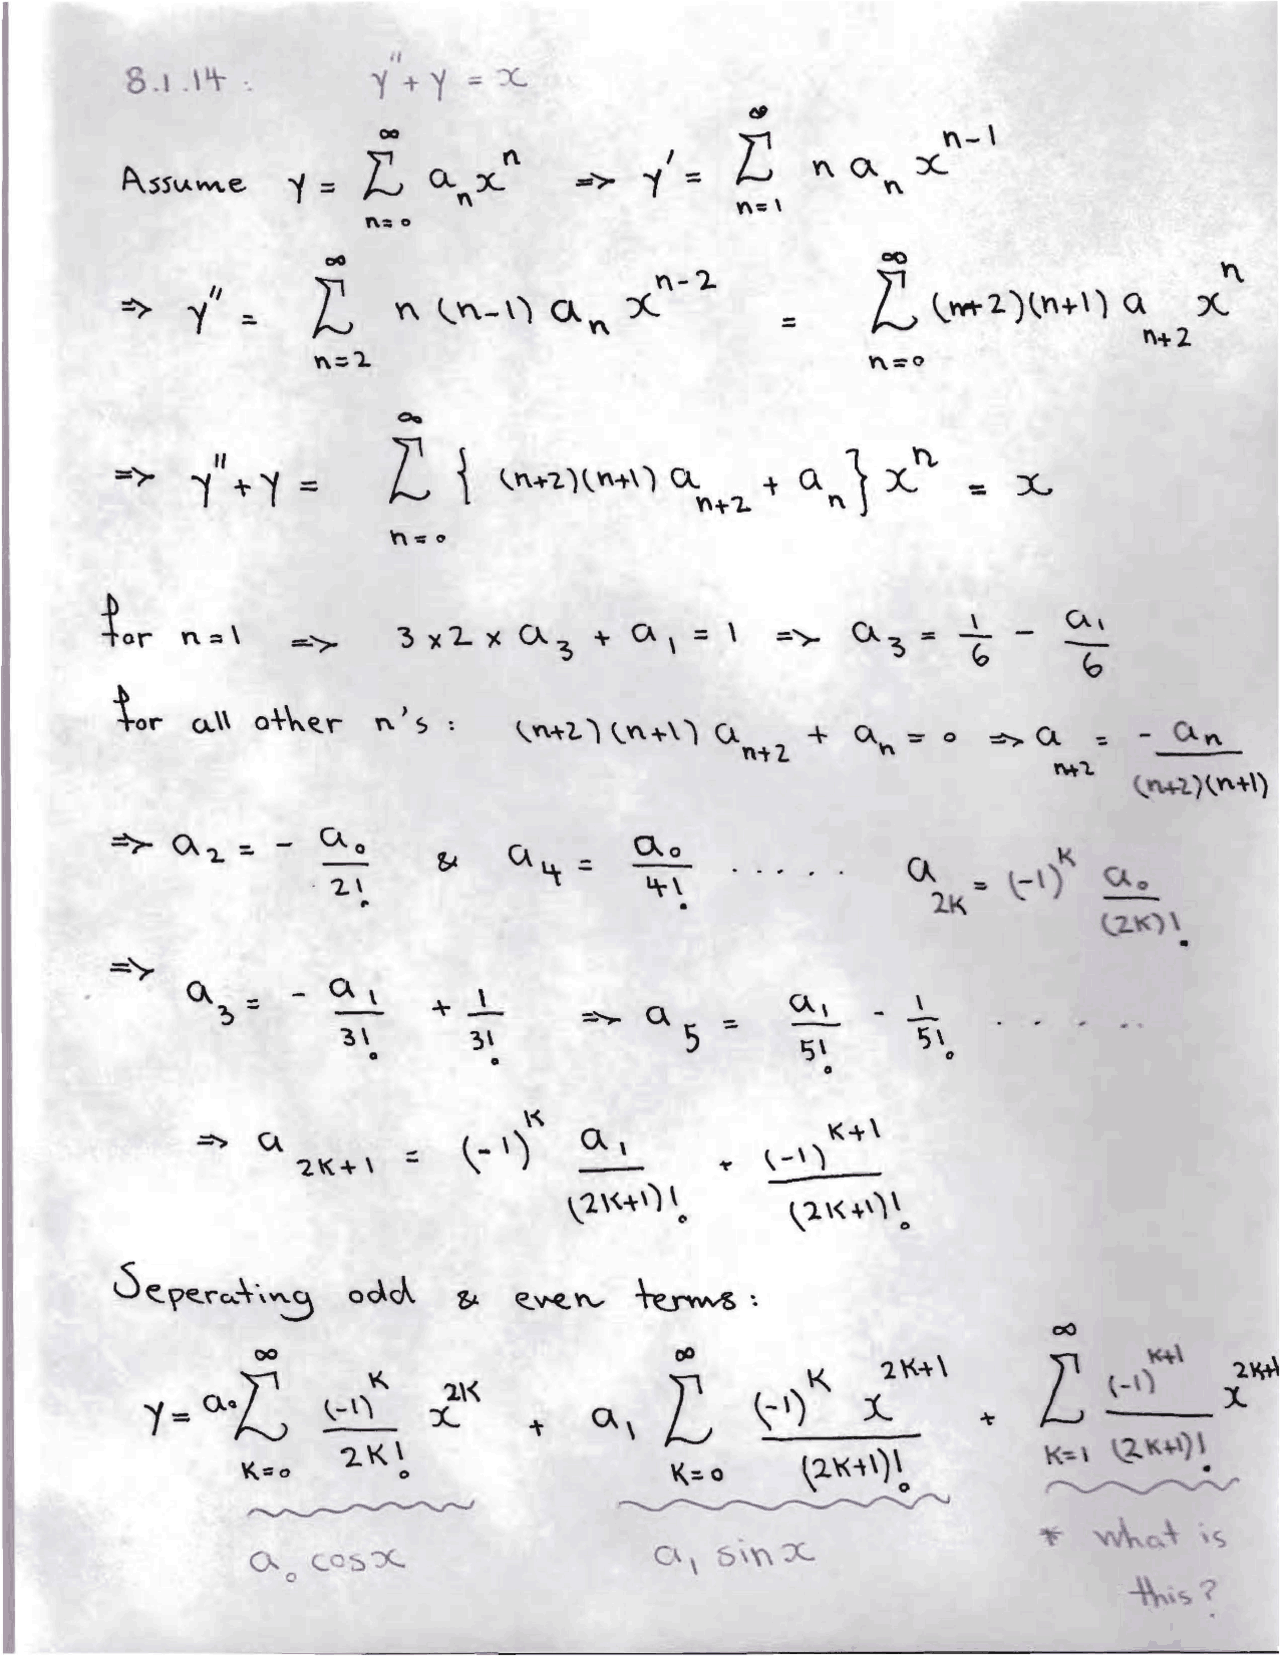 8.1.14 : y'' + y = x
Assume y = ∑_{n=0}^{∞} a_n x^n => y' = ∑_{n=1}^{∞} n a_n x^{n-1}
=> y'' = ∑_{n=2}^{∞} n (n-1) a_n x^{n-2} = ∑_{n=0}^{∞} (n+2)(n+1) a_{n+2} x^n
=> y'' + y = ∑_{n=0}^{∞} { (n+2)(n+1) a_{n+2} + a_n } x^n = x
for n=1 => 3 × 2 × a_3 + a_1 = 1 => a_3 = 1/6 - a_1/6
for all other n's : (n+2)(n+1) a_{n+2} + a_n = 0 => a_{n+2} = - a_n/((n+2)(n+1))
=> a_2 = - a_0/2! & a_4 = a_0/4! ..... a_{2K} = (-1)^K a_0/(2K)!
=> a_3 = - a_1/3! + 1/3! => a_5 = a_1/5! - 1/5! .....
=> a_{2K+1} = (-1)^K a_1/(2K+1)! + (-1)^{K+1}/(2K+1)!
Seperating odd & even terms :
y = a_0 ∑_{K=0}^{∞} (-1)^K/2K! x^{2K} + a_1 ∑_{K=0}^{∞} (-1)^K x^{2K+1}/(2K+1)! + ∑_{K=1}^{∞} (-1)^{K+1}/(2K+1)! x^{2K+1}
a_0 cosx a_1 sinx * what is
this?